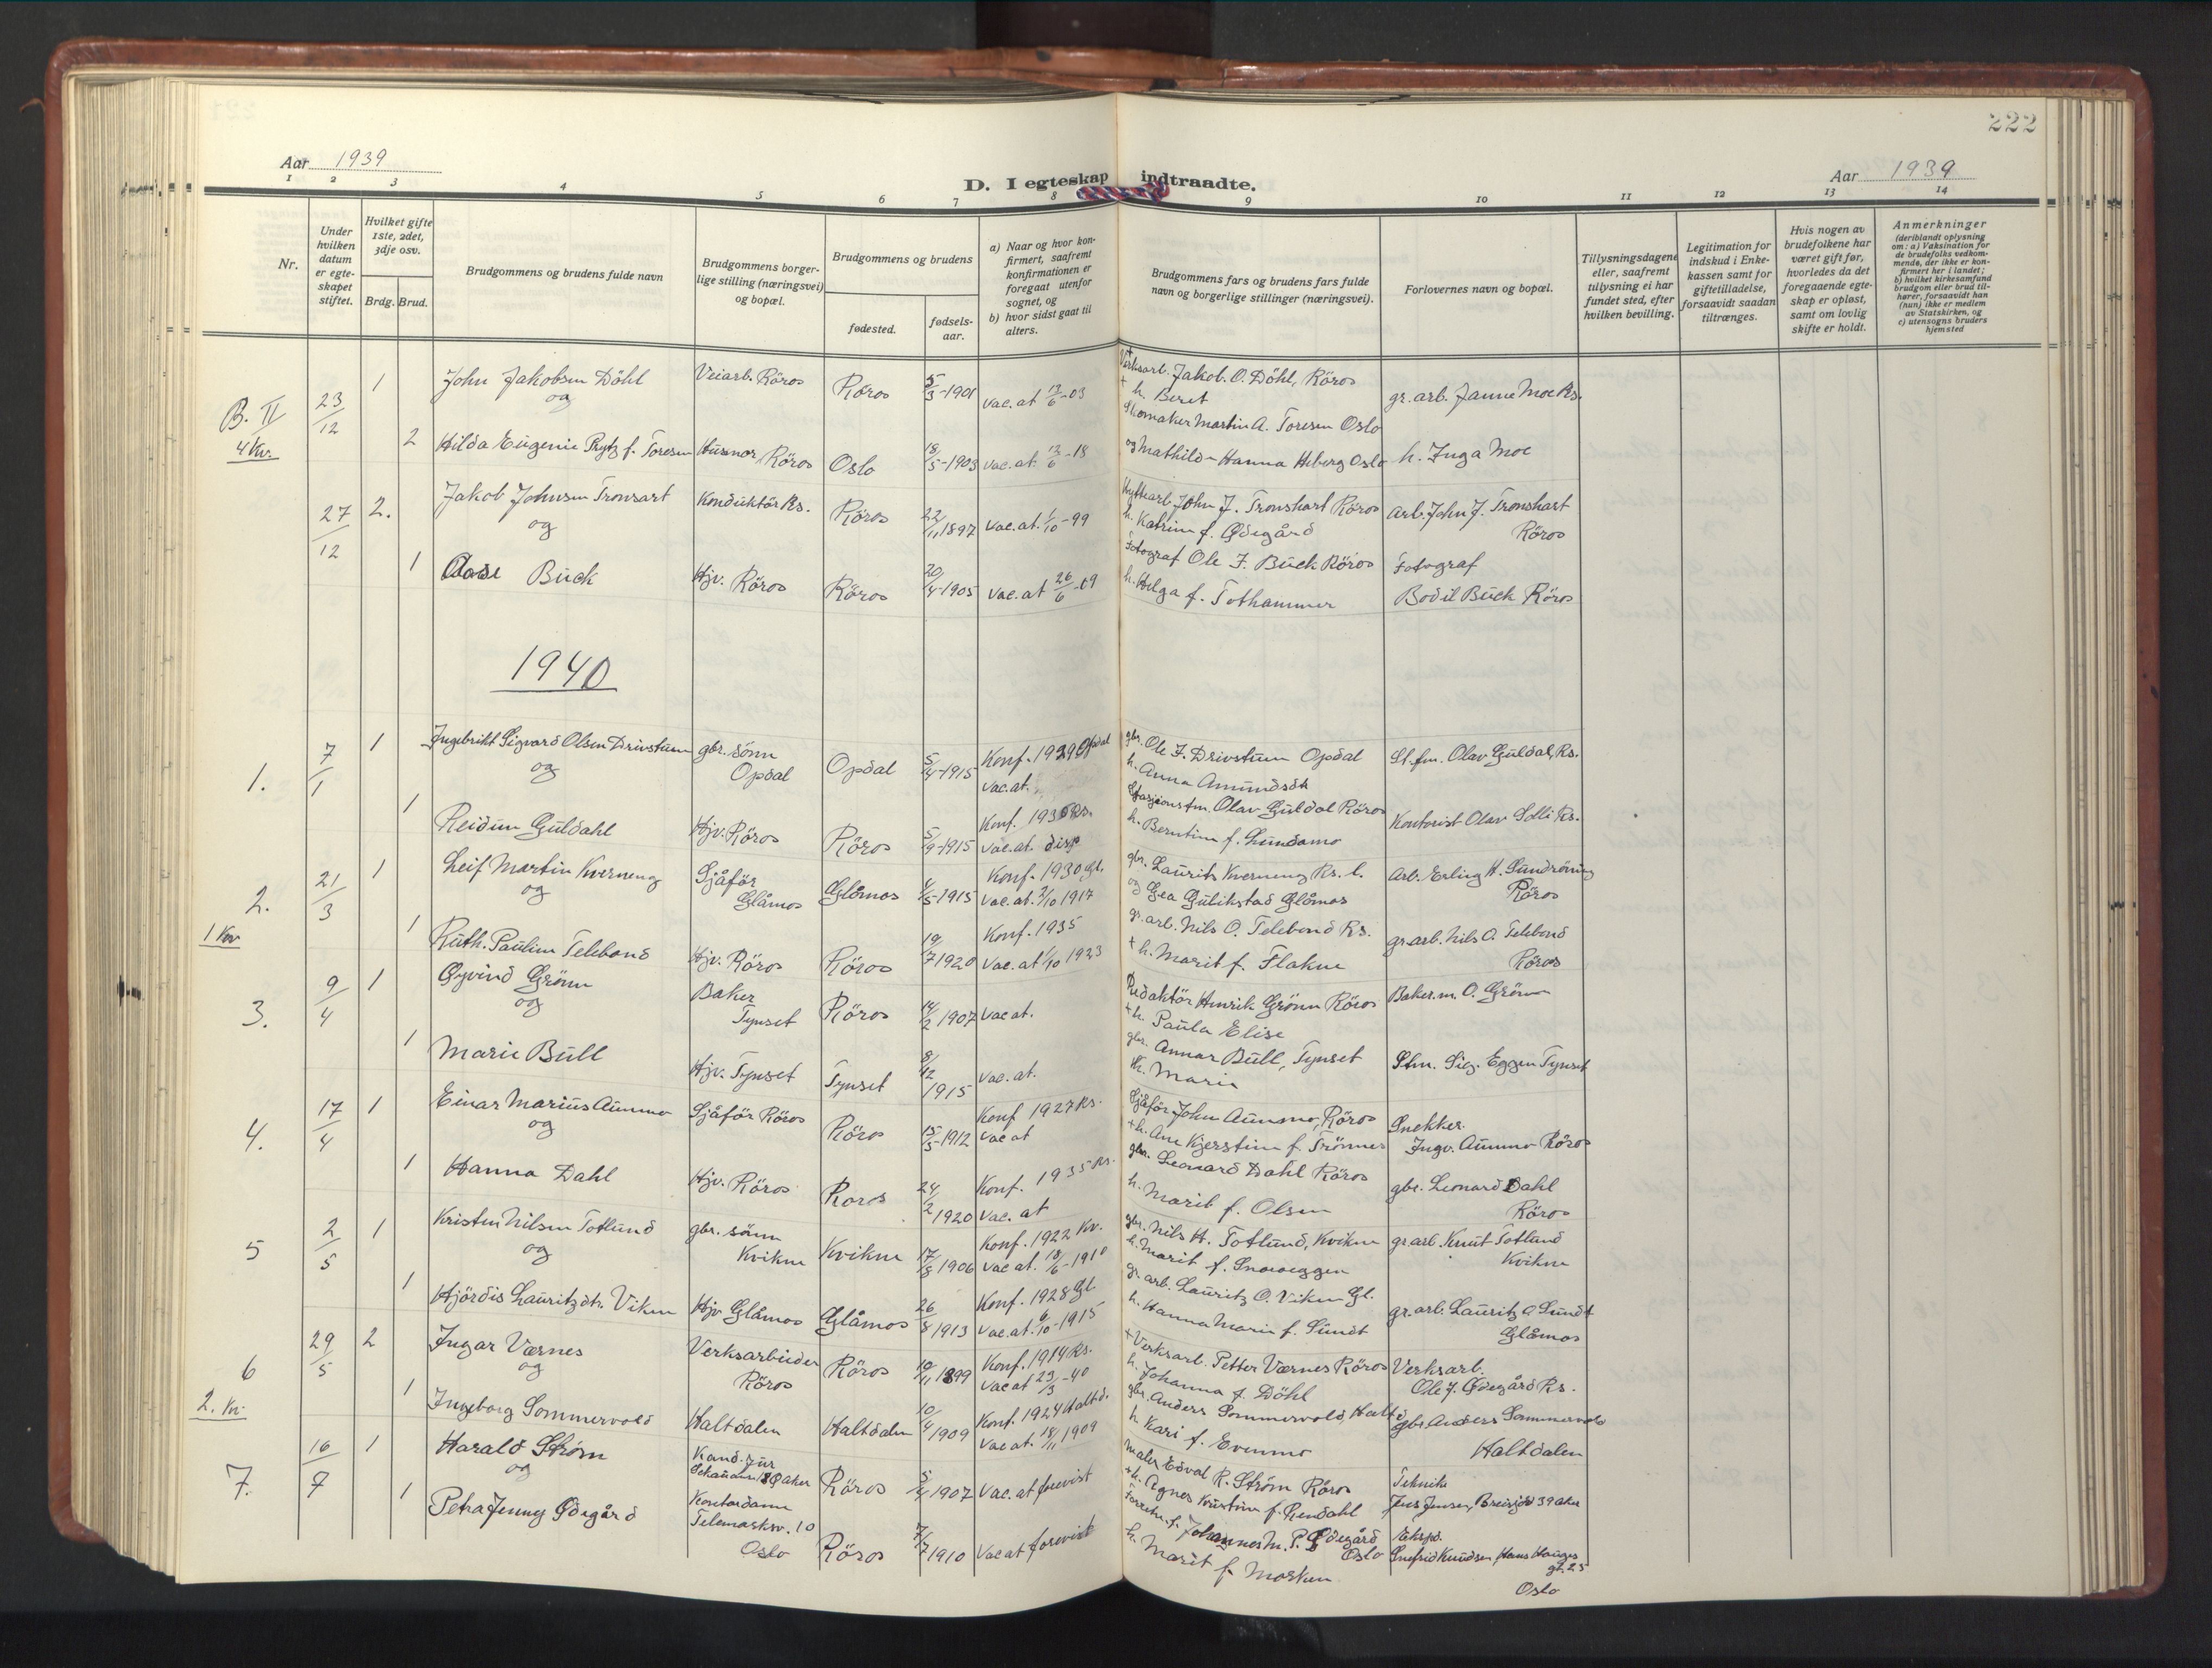 222
Aar 1939
D. I egteskap indtraadte.
Aar 1939
1 2 3 4 5 6 7 8 9 10 11 12 13 14
Nr.
Under hvilken datum er egteskapet stiftet.
Hvilket gifte 1ste, 2det, 3dje osv.
Brdg. Brud.
Brudgommens og brudens fulde navn
Brudgommens borgerlige stilling (næringsvei) og bopæl.
Brudgommens og brudens
fødested.
fødselsaar.
a) Naar og hvor konfirmert, saafremt konfirmationen er foregaat utenfor sognet, og
b) hvor sidst gaat til alters.
Brudgommens fars og brudens fars fulde navn og borgerlige stillinger (næringsvei).
Forlovernes navn og bopæl.
Tillysningsdagene eller, saafremt tillysning ei har fundet sted, efter hvilken bevilling.
Legitimation for indskud i Enkekassen samt for giftetilladelse, forsaavidt saadan tiltrænges.
Hvis nogen av brudefolkene har været gift før, hvorledes da det foregaaende egteskap er opløst, samt om lovlig skifte er holdt.
Anmerkninger
(deriblandt oplysning om: a) Vaksination for de brudefolks vedkommende, der ikke er konfirmert her i landet; b) hvilket kirkesamfund brudgom eller brud tilhører, forsaavidt han (hun) ikke er medlem av Statskirken, og c) utensogns bruders hjemsted
B. II 4 Kv. 23/12 1 John Jakobsen Döhl og Veiarb. Röros Röros 5/3-1901 vac. at 13/6-03 + Verksarb. Jakob. O. Döhl, Röros + h. Beret gr. arb. Janne Moe Rs.
2 Hilda Eugenie Prytz f. Toresen Husmor, Röros Oslo 18/5-1903 vac. at. 12/6-18 Skomaker Martin A. Toresen Oslo og Mathilde Hanna Heberg Oslo h. Inga Moe
27/12 2. Jakob Johnsen Tronsart og Konduktör Rs. Röros 22/11 1897 vac. at. 1/10-99 Hyttearb. John J. Tronshart Röros h. Katrine f. Ødegård arb. John J. Tronshart Röros
1 Aase Buck Hjv. Röros Röros 20/4-1905 vac. at 26/6-09 Fotograf Ole F. Buck Röros h. Helga f. Tothammer Fotograf Bodil Buck Röros
1940
1. 7/1 1 Ingebrikt Sigvard Olsen Drivstuen og gbr. sönn Opdal Opdal 5/4-1915 Konf. 1929 Opdal vac. at. gbr. Ole J. Drivstuen Opdal h. Anna Amundsdt St. fm. Olav Guldal, Rs.
1 Reidun Guldahl Hjv. Röros Röros 5/9-1915 Konf. 1930 Rs. vac. at. disp Stasjonsfm. Olav Guldal Röros h. Berntine f. Lundamo Kontorist Olav Solli Rs.
2. 1 Kv 21/3 1 Leif Martin Kverneng og Sjåför Glåmos Glåmos 1/5-1915 Konf. 1930 Gl. vac. at. 7/10 1917 gbr. Laurits Kverneng Rs. l. og Gea Gulikstad Glåmos Arb. Erling H. Sundröning Röros
1 Ruth. Pauline Telebond Hjv. Röros Röros 19/7 1920 Konf. 1935 vac. at 1/10 1923 gr. arb. Nils O. Telebond Rs. + h. Marit f. Flakne gr. arb. Nils O. Telebond Röros
3. 9/4 1 Øyvind Grönn og Baker Tynset Röros 14/2 1907 vac at. Redaktör Henrik Grönn Röros + h. Paula Elise Baker. m. O. Grönn
1 Marie Bull Hjv. Tynset Tynset 8/12 1915 vac. at. gbr. Annar Bull, Tynset h. Marie Stm. Sig. Eggen Tynset
4. 17/4 1 Einar Marius Aunmo og Sjåför Röros Röros 15/5-1912 Konf 1927 Rs. vac at Sjåför John Aunmo, Röros + h. Ane Kjerstine f. Trönnes Snekker. Ingv. Aunmo Röros
1 Hanna Dahl Hjv. Röros Roros 24/2 1920 Konf. 1935 Rs. vac. at gbr. Leonard Dahl Röros h. Marit f. Olsen gbr. Leonard Dahl Röros
5 2/5 1 Kristen Nilsen Totlund og gbr. sönn Kvikne Kvikne 17/8 1906 Konf. 1922 Kv. vac at. 18/6-1910 gbr. Nils H. Totlund, Kvikne h. Marit f. gr. arb. Knut Totland Kvikne
1 Hjördis Lauritzdtr. Viken Hjv Glåmos Glåmos 26/8 1913 Konf. 1928 Gl. vac. at. 6/10-1915 gr. arb. Lauritz O. Viken Gl. h. Hanna Marie f. Sundt gr. arb. Lauritz O Sundt Glåmos
6 2. Kv. 29/5 2 Ingar Værnes og Verksarbeider Röros Röros 19/11 1899 Konf. 1914 Rs. vac at 23/3-40 + Verksarb. Petter Værnes Röros h. Johanna f. Döhl Verksarb. Ole J. Ødegård Rs.
1 Ingeborg Sommervold Haltdalen Haltdalen 10/4 1909 Konf. 1924 Haltd. vac at. 18/11 1909 gbr. Anders Sommervold, Haltd h Kari f. Evenmo gbr. Anders Sommervold Haltdalen
7. 16/7 1 Harald Ström og Kand. jur 18 Ø Aker Röros 5/4 1907 vac. at forevist Maler Edval R. Ström Röros + h. Agnes Kristine f. Rendahl Tekniker Jens Jensen, Breisjöv 39 Aker
1 Petra Jenny Ødegård Kontordame Telemarksv. 10 Oslo Röros 7/7 1910 Vac at forevist Johannes M. P. Ødegård Oslo h. Marit f. Morken Eksp. Snefrid Knudsen Hans Hauges gt. 25 Oslo